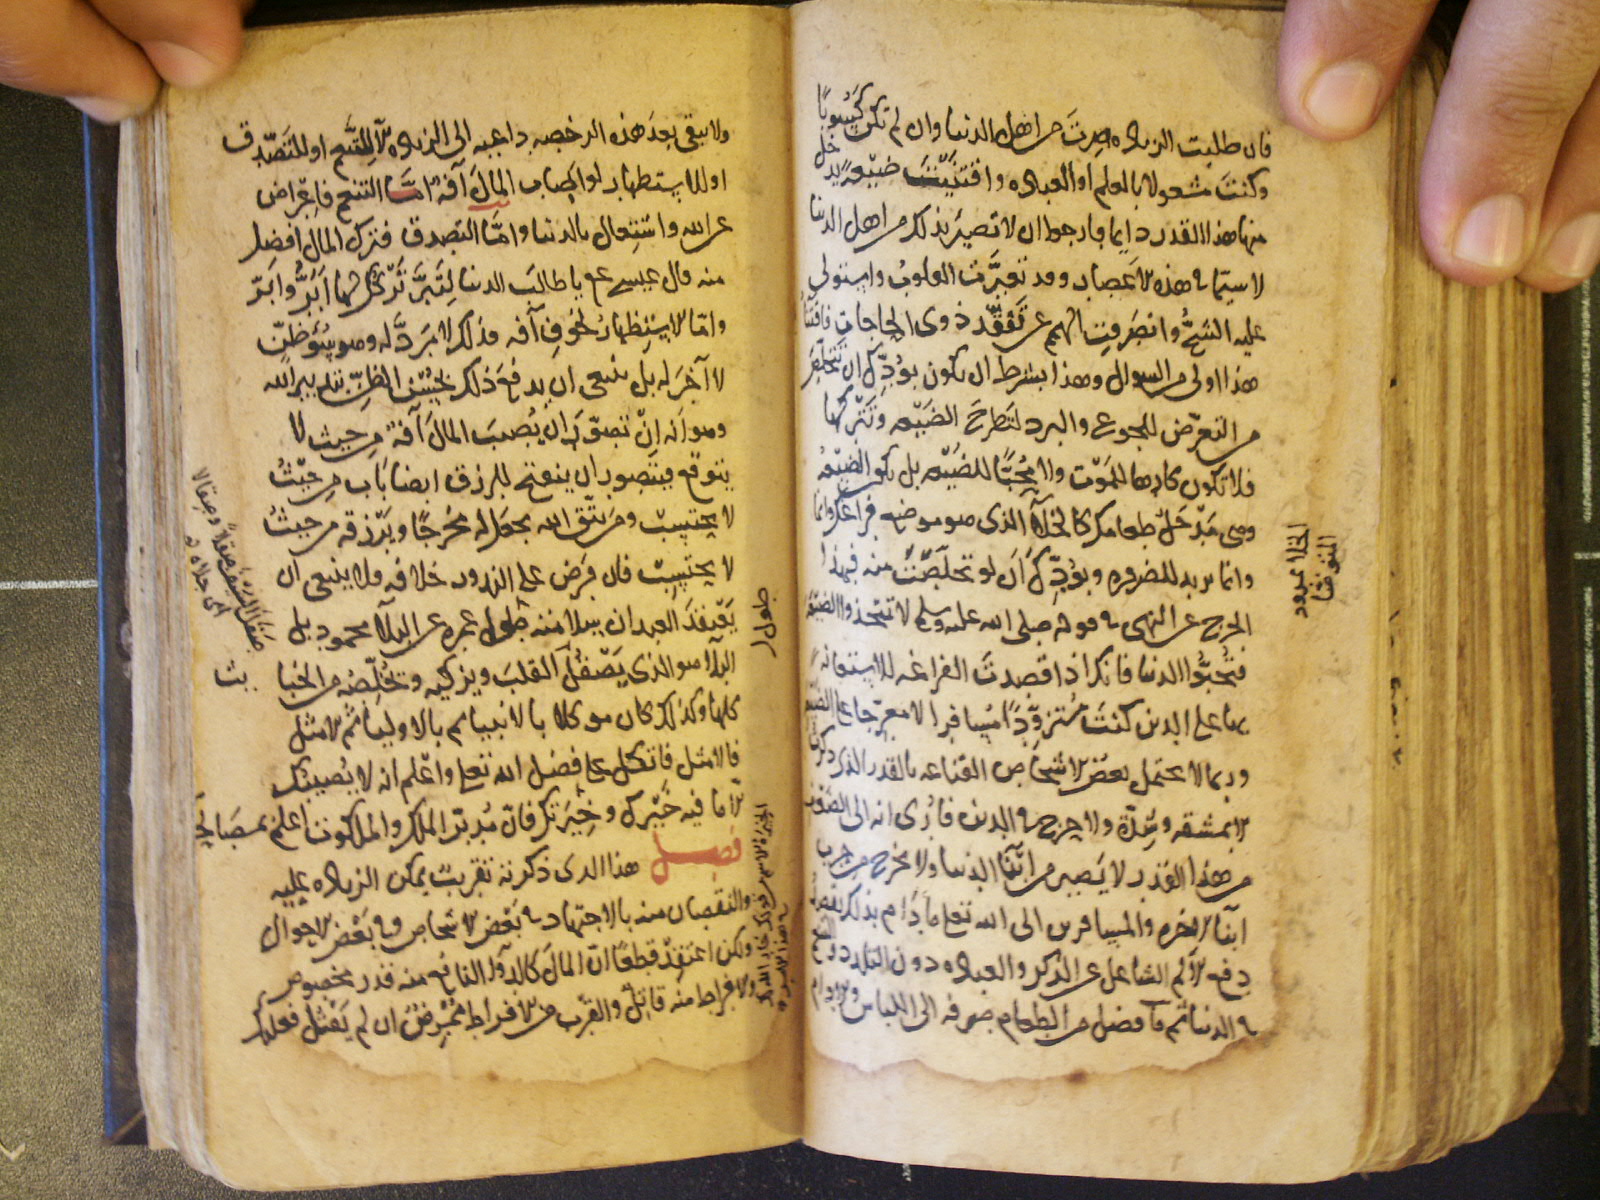 فان طلبت الزيادة صرتَ من اهل الدنيا وان لم تكن كَسُوبًا
وكنتَ مشغولا بالعلم او العبادة واقتنيتَ ضيعةً يدخل
منها هذا القدر دايما فارجوا ان لا تصير بذلك من اهل الدنيا
لا سيما في هذه الاعصار وقد تغيَّرت القلوبُ واستولى
عليه الشحُّ وانصرفت الهمم عن تَفَقّد ذوى الحاجات فاقتنا
هذا اولى من السوال وهذا بشرط ان يكون بودّك ان تتخلّص
من التعرّض للجوع والبرد لتطرحَ الضيعه وتتركها
فلا تكون كارها للموت ولا محبًّا للضيعه بل تكون الضيعه
ومى مَدْخَل طعامك كالخلآ الذى هو موضع فراغك وانما
وانما تريد للضرورة وبودّك أن لو تخلّصتَ منه فهذا
الخرج عن النهى في قوله صلى الله عليه وسلم لا تتخذوا الضيعة
فتُحبُّوا الدنيا فانك اذا قصدتَ الفراغه للاستعانة
بها على الدين كنتَ متزوّدًا مسافرا لا معرّجا على الضيعة
وربما لا يحتمل بعض الاشخاص القناعه بالقدر الذى ذكرنا
الا بمشقه وشدّة ولا حرج في الدين فارى انه الى الضعف
من هذا القدر لا يصير من ابنآ الدنيا ولا يخرج من حزب
ابنآ الاخرة والمسافرين الى الله تعلى ما دام بذلك يقصد
دفع الالم الشاغل عن الذكر والعبادة دون التلذد والتنعم
في الدنيا ثم ما فضل من الطعام صرفه الى اللباس
الخلآ ممدود
المتوضا
ولا يبقى بعدَ هذه الرخصه داعيه الى الزيادة الا للتنعم او للتصدّق
او للاستظهار لو اصاب المالَ آفةٌ امّا التنعم فاعراض
عن الله واشتغال بالدنيا وامّا التصدق فترك المال افضل
منه قال عيسى عم يا طالبَ الدنيا لتَبَرَّ تَرْكُكَ لها اَبَرُّ واَبَرّ
وامّا الاستظهار لخوف آفه فذلك لا مَرَدَّ له وهو سُؤ ظنٍّ
لا آخرَ له بل ينبغى ان يدفعَ ذلك بحُسن الظن بتدبير الله
وهو اَنه انّ تصوّرَ ان يُصيبَ المالَ آفة من حيث لا
يتوقع فيتصور ان ينفتح للرزق ايضا باب من حيثُ
لا يحتسب ومن يتّق الله يجعل له مخرجًا ويرزقه من حيثُ
لا يحتسب فان فرض على الندور خلافه فلا ينبغى ان
يعتقد العبد ان سلامته طول عمره عن البلآ محمود بل
البلآ هو الذى يَصْقُلُ القلبَ ويزكيه ويخلّصه من الخبا
ئث
كلها وكذلك كان موكلا بالانبيا ثم بالاوليا ثم الامثل
فالامثل فاتكل على فضل الله تعلى واعْلم انه لا يُصيبك
الا ما فيه خَيْرك وخِيَرتك فانّ مُدبّر الملك والملكوت اعلم بمصالح
فصل هذا الذى ذكرته تقريبٌ يمكن الزيادة عليه
والنقصان منه بالاجتهاد في بَعْض الاشخاص وفي بَعْض الاحوال
ولكن اعتقدْ قطعًا انّ المالَ كالدوآ النافع منه قدر مخصوص
والافراط منه قاتل والقرب من الافراط مُمْرِضٌ ان لم يَقْتُل فعليك
طول
صَقَلَ السَيفَ صَقْلاً وصِقالا
اى جلاه